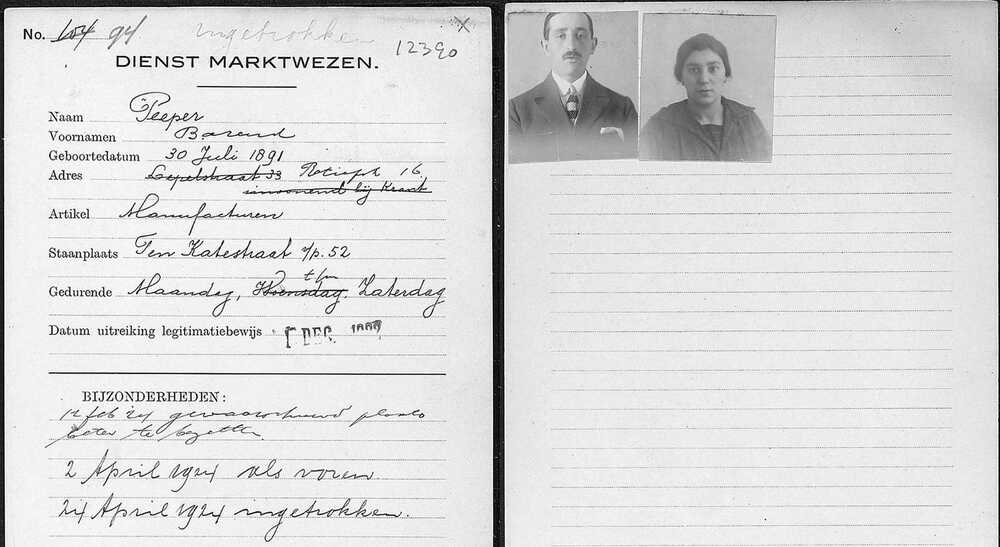 No. 104 94 ingetrokken x
12390
DIENST MARKTWEZEN.
Naam Peeper
Voornamen Barend
Geboortedatum 30 Juli 1891
Adres Lepelstraat 33 Retiefstr 16
inwonend bij Kraat
Artikel Manufacturen
Staanplaats Ten Katestraat v/p. 52
t/m
Gedurende Maandag, Woensdag, Zaterdag
Datum uitreiking legitimatiebewijs DEC.
BIJZONDERHEDEN:
12 feb '24 gewaarschuwd plaats
beter te bezetten
2 April 1924 als voren.
24 April 1924 ingetrokken.